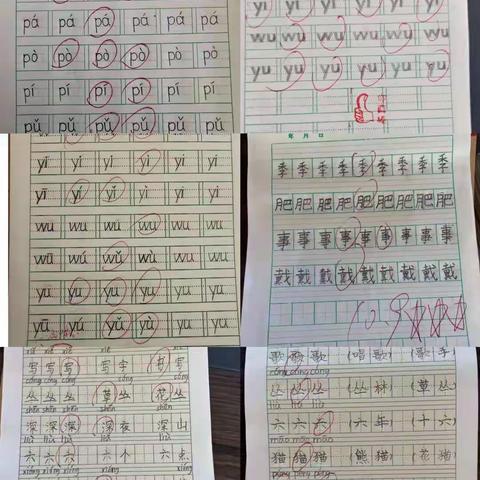 pá pá pá pá pá pá
pò pò pò pò pò pò
pí pí pí pí pí pí
pǔ pǔ pǔ pǔ pǔ pǔ
yi yi yi yi yi yi
wu wu wu wu wu wu
yu yu yu yu yu yu
yī yi yi yi yi yi
yī yí yǐ yì yi yi
wu wu wu wu wu wu
wū wú wǔ wù wu wu
yu yu yu yu yu yu
yū yú yǔ yù yu yu
年 月 日
季 季 季 季 季 季 季 季
肥 肥 肥 肥 肥 肥 肥 肥
事 事 事 事 事 事 事 事
戴 戴 戴 戴 戴 戴 戴 戴
写 写 写 写 字 书 写
cóng cóng cóng cóng cóng
丛 丛 丛 草 丛 花 丛
shēn shēn shēn shēn shēn
深 深 深 深 夜 深 山
liù liù liù liù liù
六 六 六 六 个 六 点
歌 歌 歌 (唱 歌) (歌 手)
cóng cóng cóng
丛 丛 丛 (丛 林) (草 丛)
liù liù liù
六 六 六 (六 年) (十 六)
māo māo māo
猫 猫 猫 (熊 猫) (花 猫)